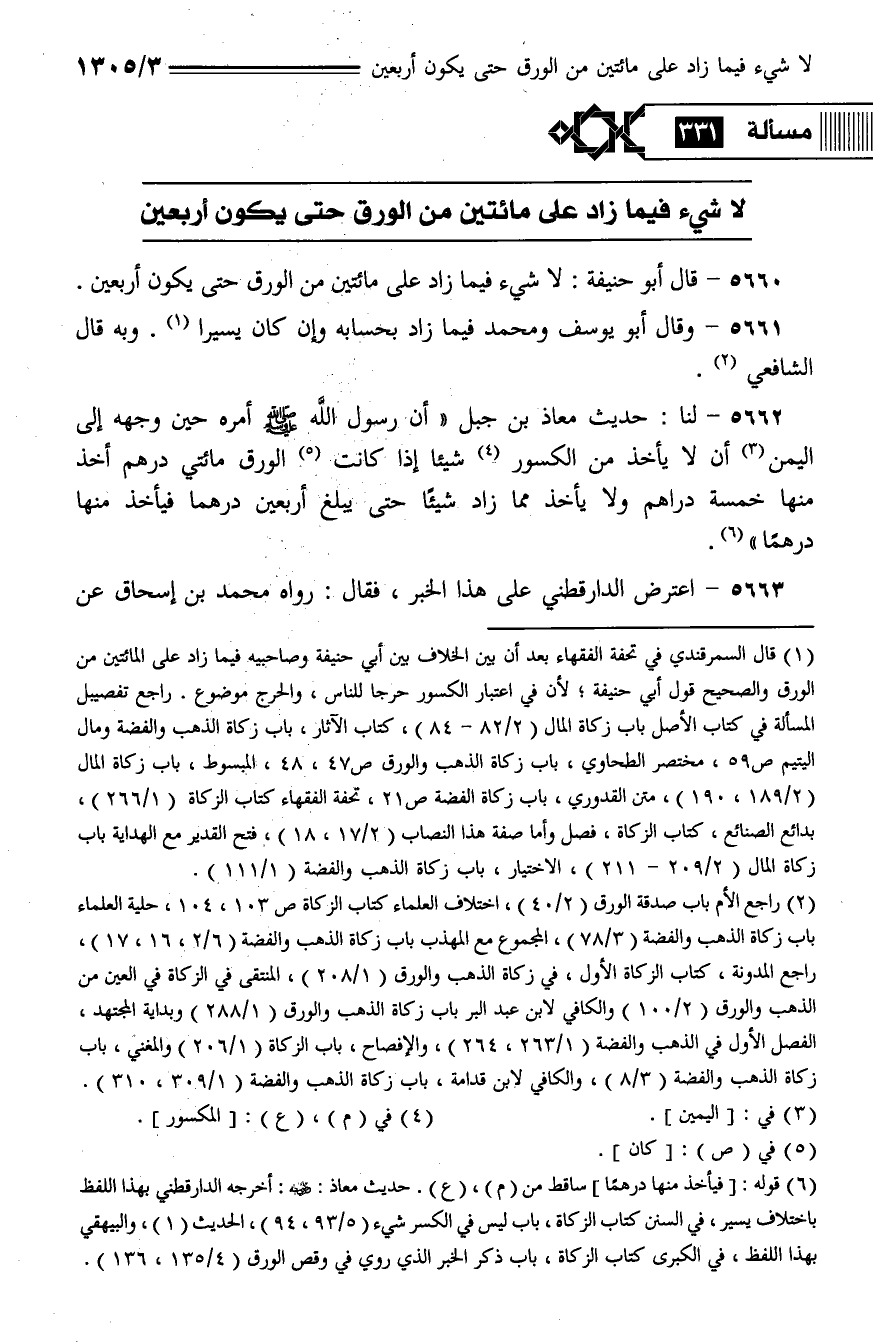 لا شيء فيما زاد على مائتين من الورق حتى يكون أربعين ١٣٠٥/٣
مسألة ٣٣١
لا شيء فيما زاد على مائتين من الورق حتى يكون أربعين
٥٦٦٠ - قال أبو حنيفة : لا شيء فيما زاد على مائتين من الورق حتى يكون أربعين .
٥٦٦١ - وقال أبو يوسف ومحمد فيما زاد بحسابه وإن كان يسيرا (١) . وبه قال
الشافعي (٢) .
٥٦٦٢ - لنا : حديث معاذ بن جبل « أن رسول اللَّه ﷺ أمره حين وجهه إلى
اليمن (٣) أن لا يأخذ من الكسور (٤) شيئا إذا كانت (٥) الورق مائتي درهم أخذ
منها خمسة دراهم ولا يأخذ مما زاد شيئًا حتى يبلغ أربعين درهما فيأخذ منها
درهمًا » (٦) .
٥٦٦٣ - اعترض الدارقطني على هذا الخبر ، فقال : رواه محمد بن إسحاق عن
(١) قال السمرقندي في تحفة الفقهاء بعد أن بين الخلاف بين أبي حنيفة وصاحبيه فيما زاد على المائتين من
الورق والصحيح قول أبي حنيفة ؛ لأن في اعتبار الكسور حرجا للناس ، والحرج موضوع . راجع تفصيل
المسألة في كتاب الأصل باب زكاة المال ( ٨٢/٢ - ٨٤ ) ، كتاب الآثار ، باب زكاة الذهب والفضة ومال
اليتيم ص٥٩ ، مختصر الطحاوي ، باب زكاة الذهب والورق ص٤٧ ، ٤٨ ، المبسوط ، باب زكاة المال
( ١٨٩/٢ ، ١٩٠ ) ، متن القدوري ، باب زكاة الفضة ص٢١ ، تحفة الفقهاء كتاب الزكاة ( ٢٦٦/١ ) ،
بدائع الصنائع ، كتاب الزكاة ، فصل وأما صفة هذا النصاب ( ١٧/٢ ، ١٨ ) ، فتح القدير مع الهداية باب
زكاة المال ( ٢٠٩/٢ - ٢١١ ) ، الاختيار ، باب زكاة الذهب والفضة ( ١١١/١ ) .
(٢) راجع الأم باب صدقة الورق ( ٤٠/٢ ) ، اختلاف العلماء كتاب الزكاة ص ١٠٣ ، ١٠٤ ، حلية العلماء
باب زكاة الذهب والفضة ( ٧٨/٣ ) ، المجموع مع المهذب باب زكاة الذهب والفضة ( ٢/٦ ، ١٦ ، ١٧ ) ،
راجع المدونة ، كتاب الزكاة الأول ، في زكاة الذهب والورق ( ٢٠٨/١ ) ، المنتقى في الزكاة في العين من
الذهب والورق ( ١٠٠/٢ ) والكافي لابن عبد البر باب زكاة الذهب والورق ( ٢٨٨/١ ) وبداية المجتهد ،
الفصل الأول في الذهب والفضة ( ٢٦٣/١ ، ٢٦٤ ) ، والإفصاح ، باب الزكاة ( ٢٠٦/١ ) والمغني ، باب
زكاة الذهب والفضة ( ٨/٣ ) ، والكافي لابن قدامة ، باب زكاة الذهب والفضة ( ٣٠٩/١ ، ٣١٠ ) .
(٣) في : [ اليمين ] . (٤) في ( م ) ، ( ع ) : [ المكسور ] .
(٥) في ( ص ) : [ كان ] .
(٦) قوله : [ فيأخذ منها درهمًا ] ساقط من ( م ) ، ( ع ) . حديث معاذ : ﷺ : أخرجه الدارقطني بهذا اللفظ
باختلاف يسير ، في السنن كتاب الزكاة ، باب ليس في الكسر شيء ( ٩٣/٥ ، ٩٤ ) ، الحديث ( ١ ) ، والبيهقي
بهذا اللفظ ، في الكبرى كتاب الزكاة ، باب ذكر الخبر الذي روي في وقص الورق ( ١٣٥/٤ ، ١٣٦ ) .